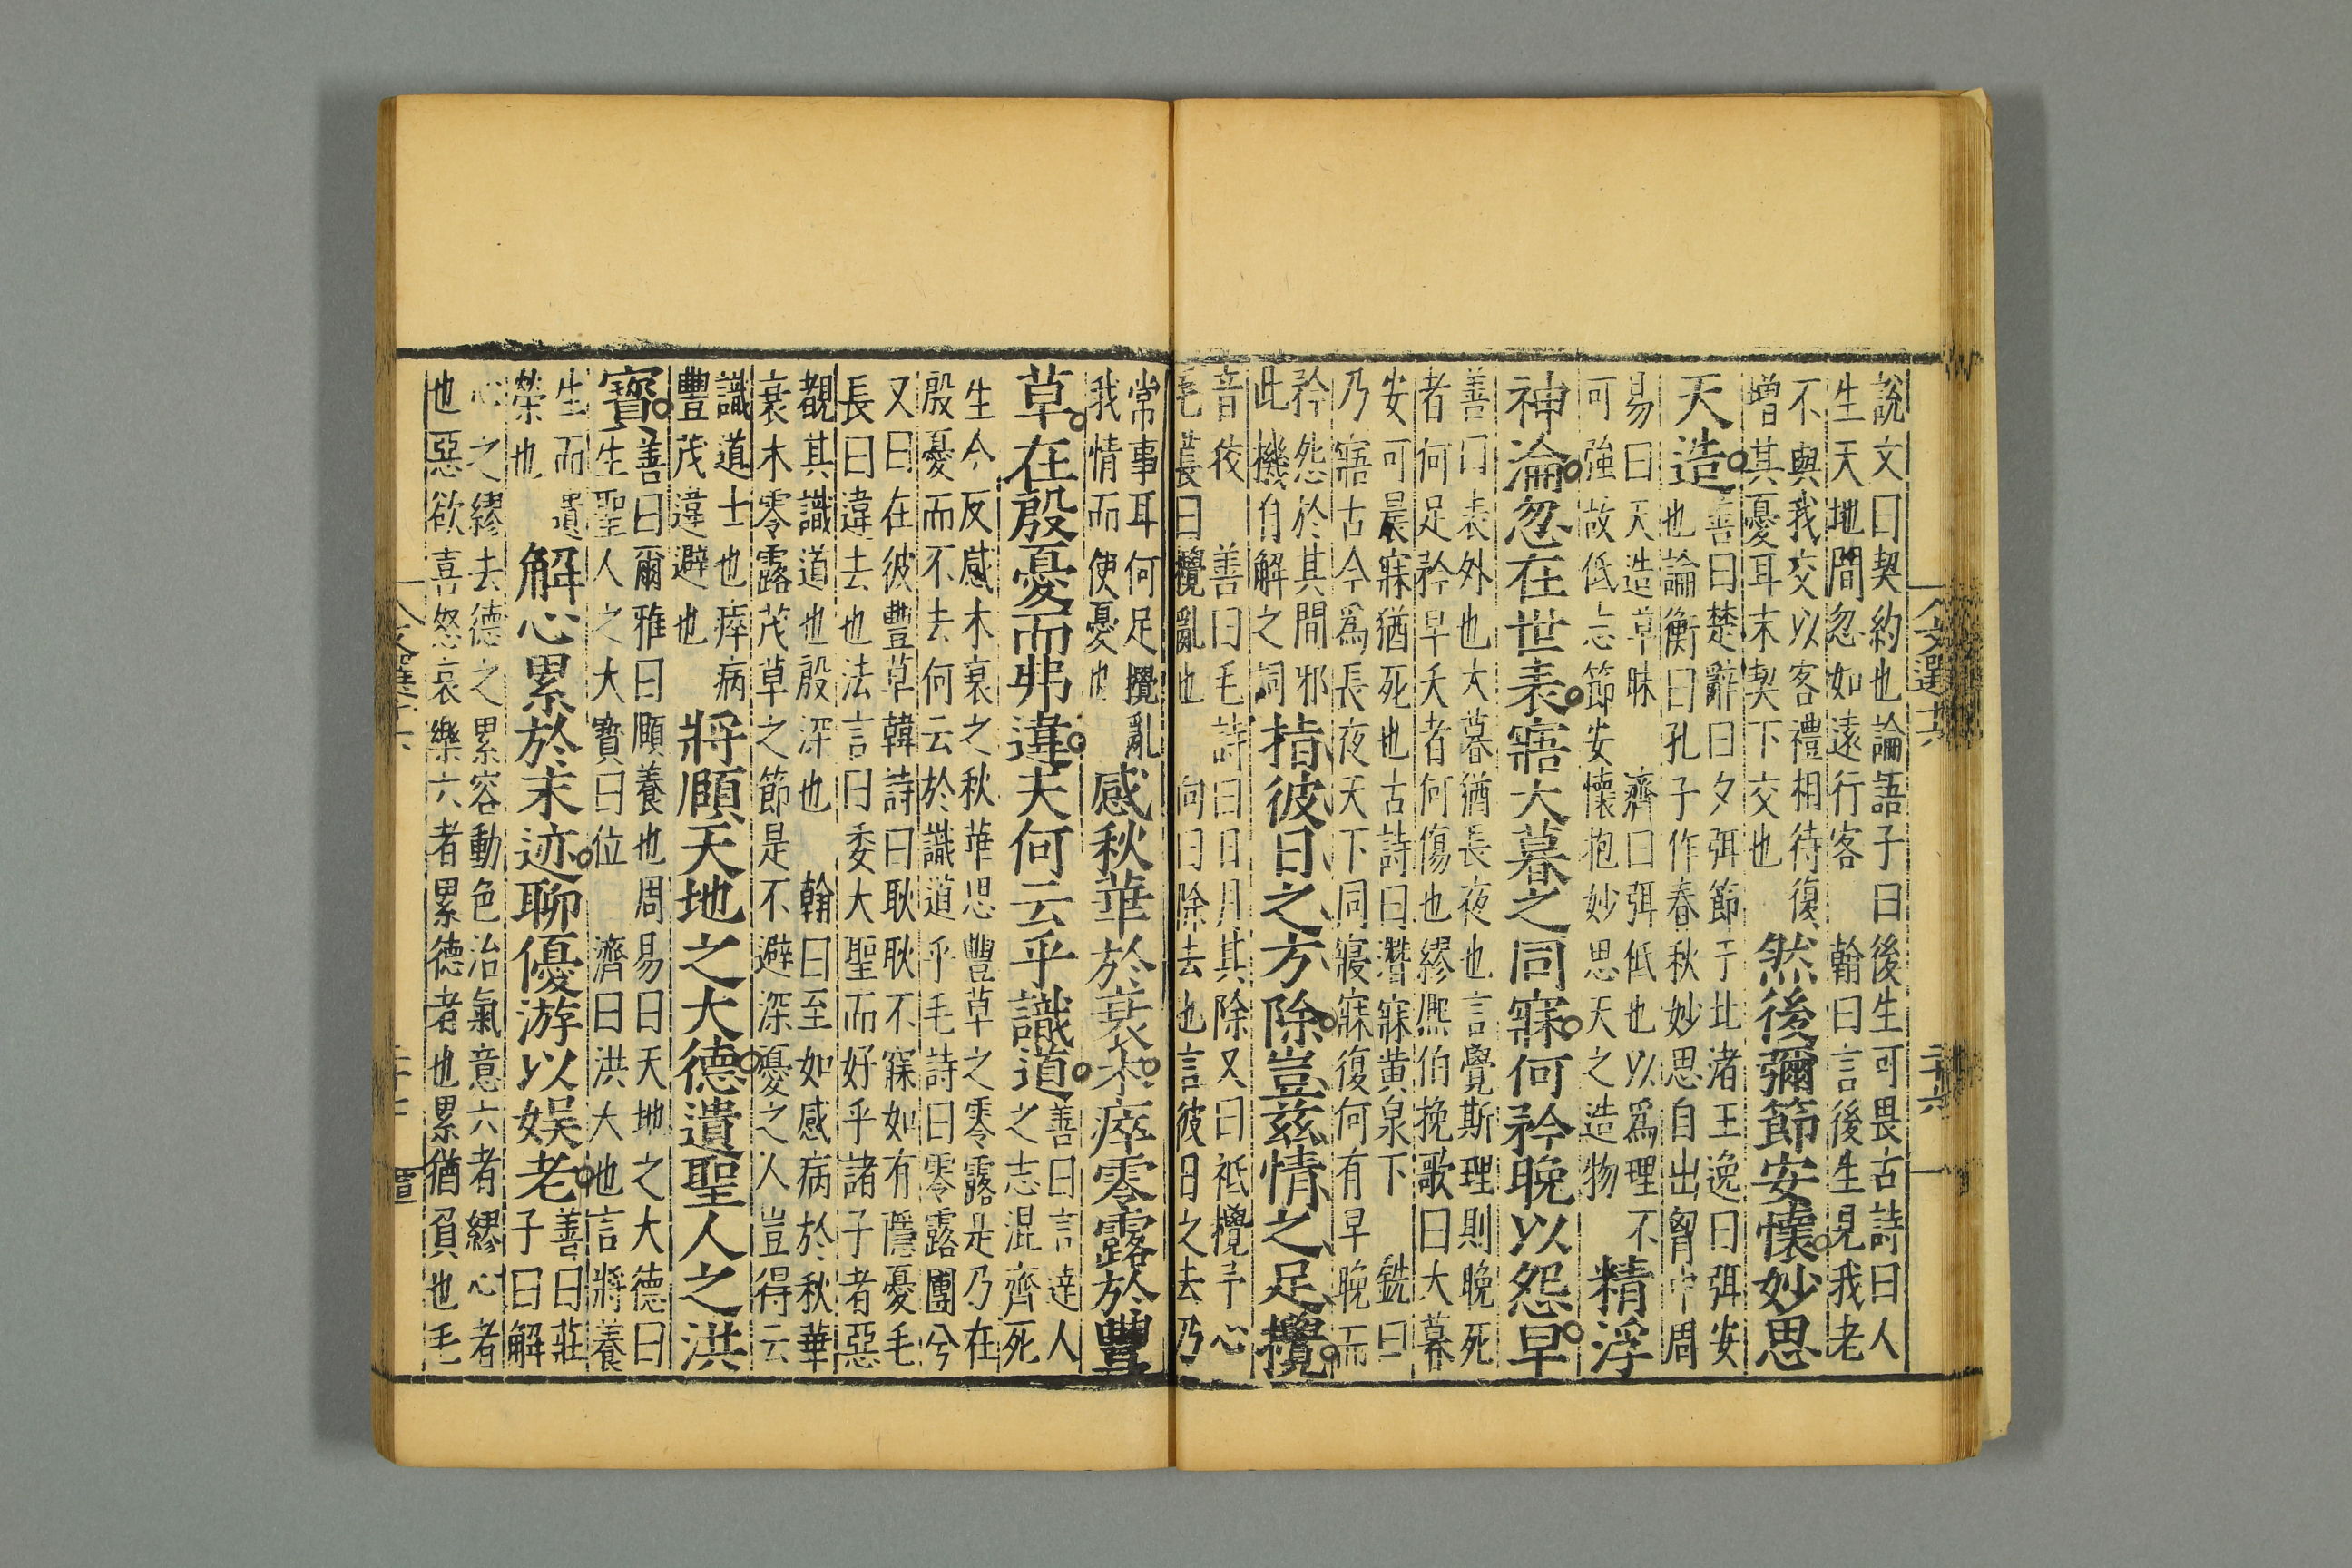 說文曰契約也論語子曰後生可畏古詩曰人
生天地間忽如遠行客 翰曰言後生見我老
不與我交以客禮相待復
增其憂耳末契下交也
然後彌節安懷妙思
天造
善曰楚辭曰夕弭節于北渚王逸曰弭安
也論衡曰孔子作春秋妙思自出胷中周
易曰天造草昧 濟曰弭低也以爲理不
可強故低志節安懷抱妙思天之造物
精浮
神淪忽在世表寤大暮之同寐何矜晚以怨早
善曰表外也大暮猶長夜也言覺斯理則晚死
者何足矜早夭者何傷也繆熙伯挽歌曰大暮
安可晨寐猶死也古詩曰潛寐黄泉下 銑曰
乃寤古今爲長夜天下同寢寐復何有早晚而
矜怨於其間邪
此機自解之詞
指彼日之方除豈茲情之足攪
音狡 善曰毛詩曰日月其除又曰祗攪予心
毛萇曰攪亂也 向曰除去也言彼日之去乃
常事耳何足攪亂
我情而使憂也
感秋華於衰木瘁零露於豐
草在殷憂而弗違夫何云乎識道
善曰言達人
之志混齊死
生今反感木衰之秋華思豐草之零露是乃在
殷憂而不去何云於識道乎毛詩曰零露團兮
又曰在彼豐草韓詩曰耿耿不寐如有隱憂毛
長曰違去也法言曰委大聖而好乎諸子者惡
覩其識道也殷深也 翰曰至如感病於秋華
衰木零露茂草之節是不避深憂之人豈得云
識道士也瘁病
豐茂違避也
將頤天地之大德遺聖人之洪
寳
善曰爾雅曰頤養也周易曰天地之大德曰
生聖人之大寳曰位 濟曰洪大也言將養
生而遺
榮也
解心累於末迹聊優游以娱老
善曰莊
子曰解
心之繆去德之累容動色治氣意六者繆心者
也惡欲喜怒哀樂六者累德者也累猶負也毛
文選十六
二十六